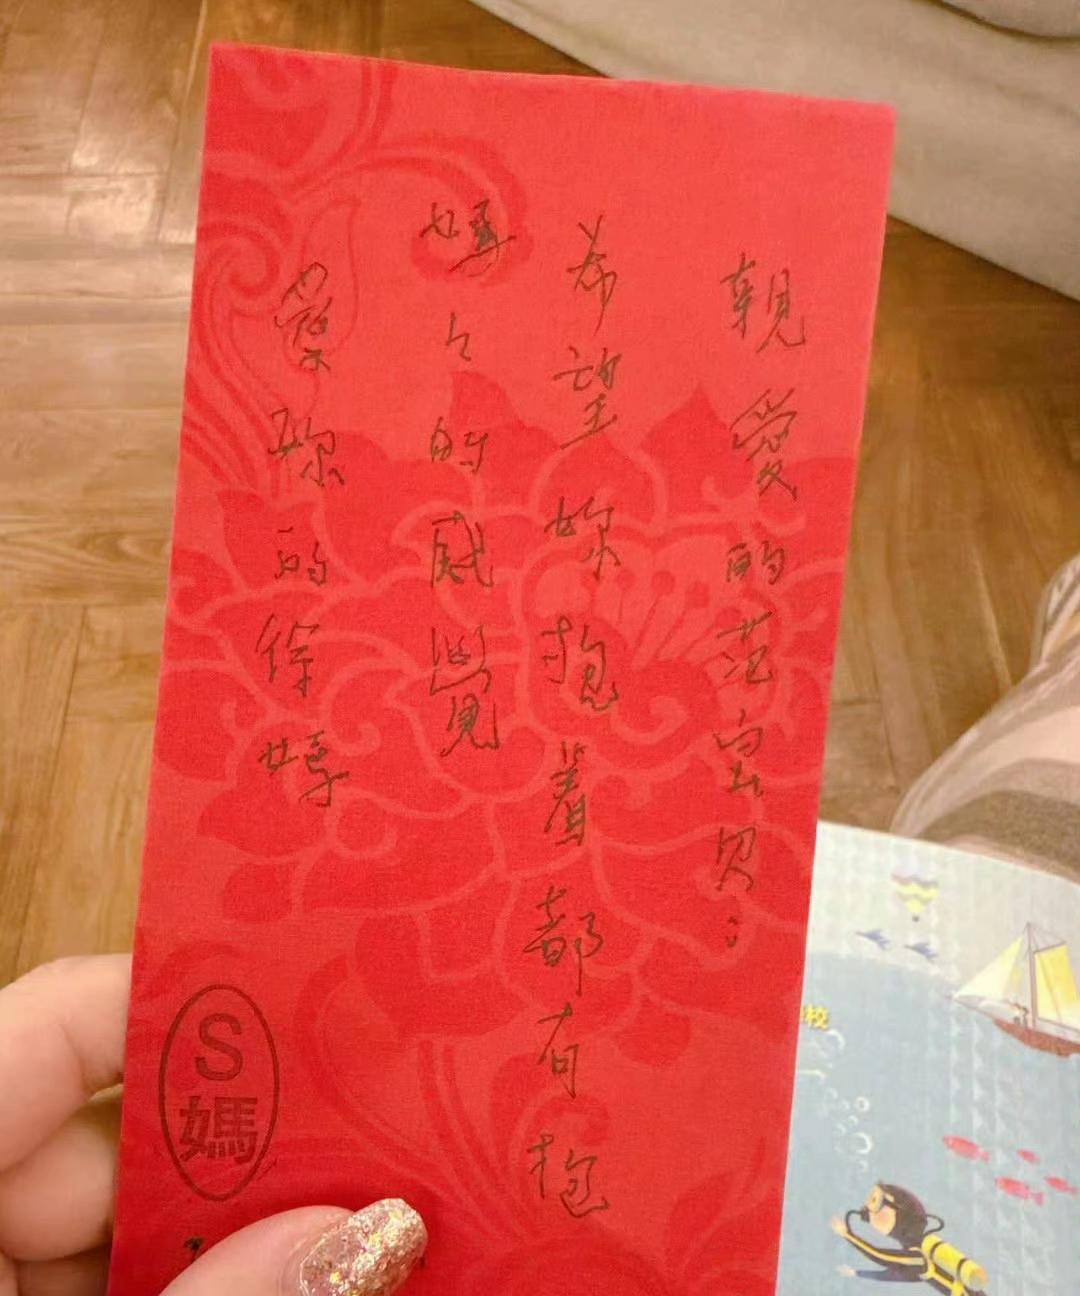 親愛的范宝贝：
希望妳抱著都有抱
媽々的感覺
愛妳的徐媽
S
媽
校